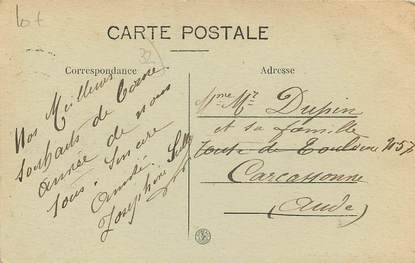 lot
CARTE POSTALE
32
Correspondance
Adresse
Nos Meilleurs
souhaits de bonne
année de nous
tous. Sincère
Amitié.
Joséphine
Mme Mr Dupin
et sa famille
Route de Toulouse N 57
Carcassonne
(Aude)